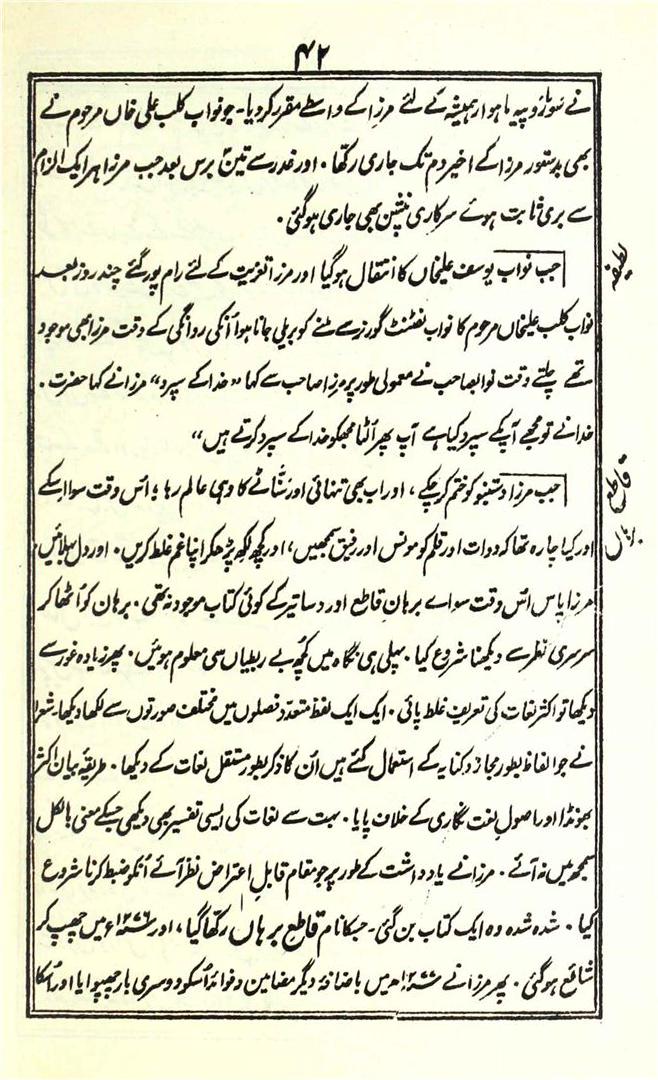 ۴۲
نے سَو روپیہ ماہوار ہمیشہ کے لئے مرزا کے واسطے مقرر کر دیا۔ جو نواب کلب علی خاں مرحوم نے
بھی بدستور مرزا کے اخیر دم تک جاری رکھا ۰ اور غدر سے تین برس بعد جب مرزا ہر ایک الزام
سے بری ثابت ہوئے سرکاری پنشن بھی جاری ہوگئی ۰
لطیفہ
جب نواب یوسف علیخاں کا انتقال ہوگیا اور مرزا تعزیت کے لئے رام پور گئے چند روز بعد
نواب کلب علیخاں مرحوم کا نواب لفٹنٹ گورنر سے ملنے کو بریلی جانا ہوا اُنکی روانگی کے وقت مرزا بھی موجود
تھے چلتے وقت نوابصاحب نے معمولی طور پر مرزا صاحب سے کہا ”خدا کے سپرد“ مرزا نے کہا حضرت ۰
خدا نے تو مجھے آپکے سپرد کیا ہے آپ پھر اُلٹا مجھکو خدا کے سپرد کرتے ہیں“
قاطع برہان
جب مرزا دستنبو کو ختم کر چکے ، اور اب بھی تنہائی اور سنّاٹے کا وہی عالم رہا ؛ اس وقت سوا اسکے
اور کیا چارہ تھا کہ دوات اور قلم کو مونس اور رفیق سمجھیں ، اور کچھ لکھ پڑھکر اپنا غم غلط کریں ۰ اور دل بہلائیں
مرزا پاس اُس وقت سواے برہانِ قاطع اور دساتیر کے کوئی کتاب موجود نہ تھی ۰ برہان کو اُٹھا کر
سرسری نظر سے دیکھنا شروع کیا ۰ پہلی ہی نگاہ میں کچھ بے ربطیاں سی معلوم ہوئیں ۰ پھر زیادہ غور سے
دیکھا تو اکثر لغات کی تعریف غلط پائی ۰ ایک ایک لفظ متعدّد فصلوں میں مختلف صورتوں سے لکھا دیکھا۔ شعرا
نے جو الفاظ بطور مجاز و کنایہ کے استعمال کئے ہیں اُن کا ذکر بطور مستقل لغات کے دیکھا ۰ طریقۂ بیان اکثر
بھونڈا اور اصولِ لغت نگاری کے خلاف پایا ۰ بہت سے لغات کی ایسی تفسیر بھی دیکھی جسکے معنی بالکل
سمجھ میں نہ آئے ۰ مرزا نے یاد داشت کے طور پر جو مقام قابلِ اعتراض نظر آئے اُنکو ضبط کرنا شروع
کیا ۰ شدہ شدہ وہ ایک کتاب بن گئی۔ جسکا نام قاطع برہان رکھا گیا ، اور ۱۲۷۶ھ میں چھپ کر
شائع ہوگئی ۰ پھر مرزا نے ۱۲۷۷ھ میں باضافۂ دیگر مضامین و فوائد اُسکو دوسری بار چھپوایا اور اُسکا